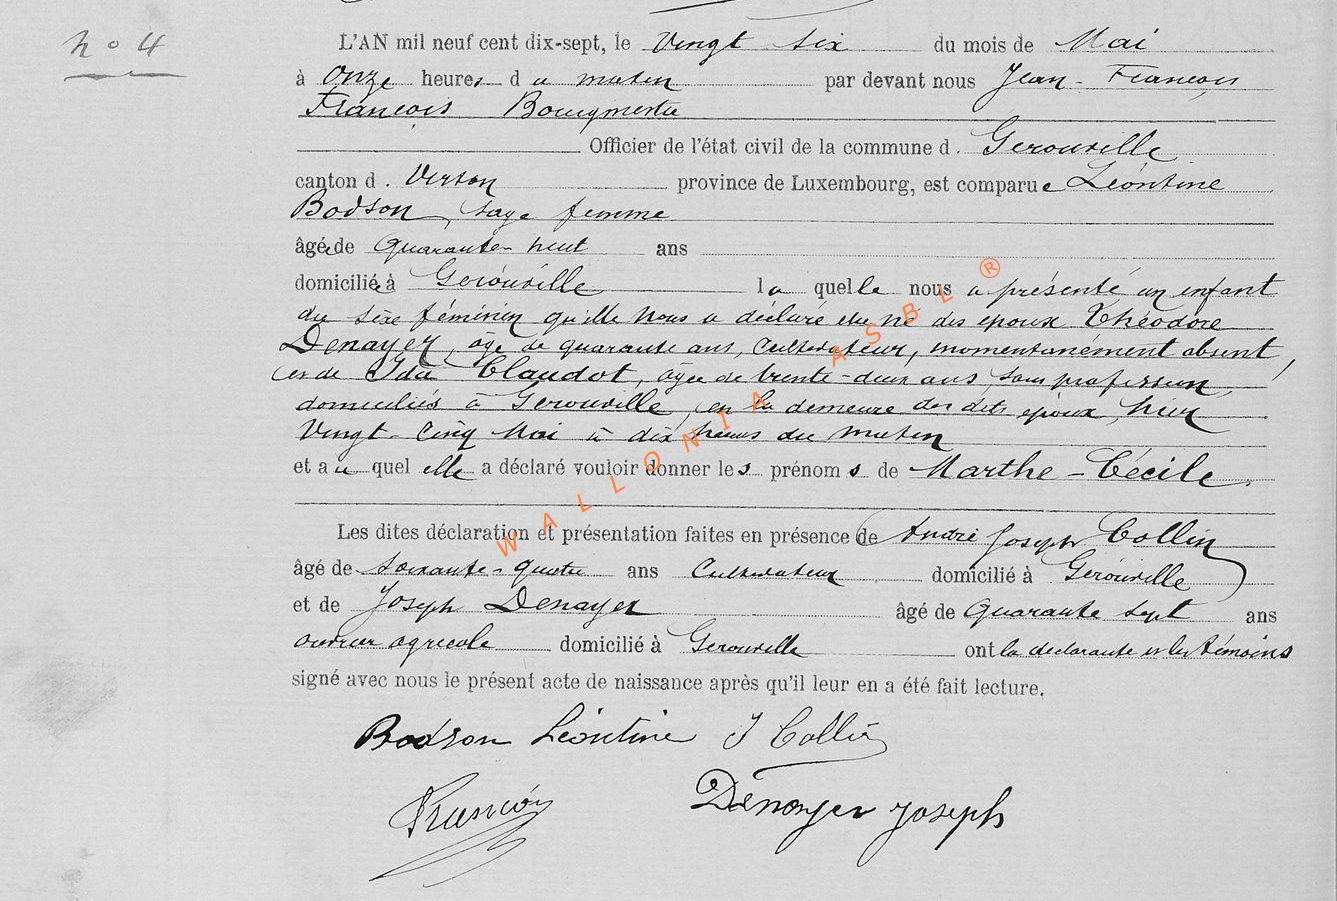 no 4
L'AN mil neuf cent dix-sept, le Vingt six du mois de Mai
à Onze heures du matin par devant nous Jean-François
François Bourgmestre
Officier de l'état civil de la commune d. Gérouville
canton d. Virton province de Luxembourg, est comparue Léontine
Bodson, sage femme
âgée de quarante-huit ans
domiciliée à Gérouville laquelle nous a présenté un enfant
du sexe féminin qu'elle nous a déclaré être né des époux Théodore
Denayer, âgé de quarante ans, cultivateur, momentanément absent,
et de Ida Claudot, âgée de trente-deux ans, sans profession,
domiciliés à Gérouville, en la demeure des dits époux, hier
Vingt-Cinq Mai à dix heures du matin
et auquel elle a déclaré vouloir donner les prénoms de Marthe-Cécile.
Les dites déclaration et présentation faites en présence de André Joseph Collin
âgé de soixante-quatre ans Cultivateur domicilié à Gérouville
et de Joseph Denayer âgé de quarante sept ans
ouvrier agricole domicilié à Gérouville ont la déclarante et les témoins
signé avec nous le présent acte de naissance après qu'il leur en a été fait lecture.
Bodson Léontine J Collin
François Denayer Joseph
WALLONIA ASBL ®